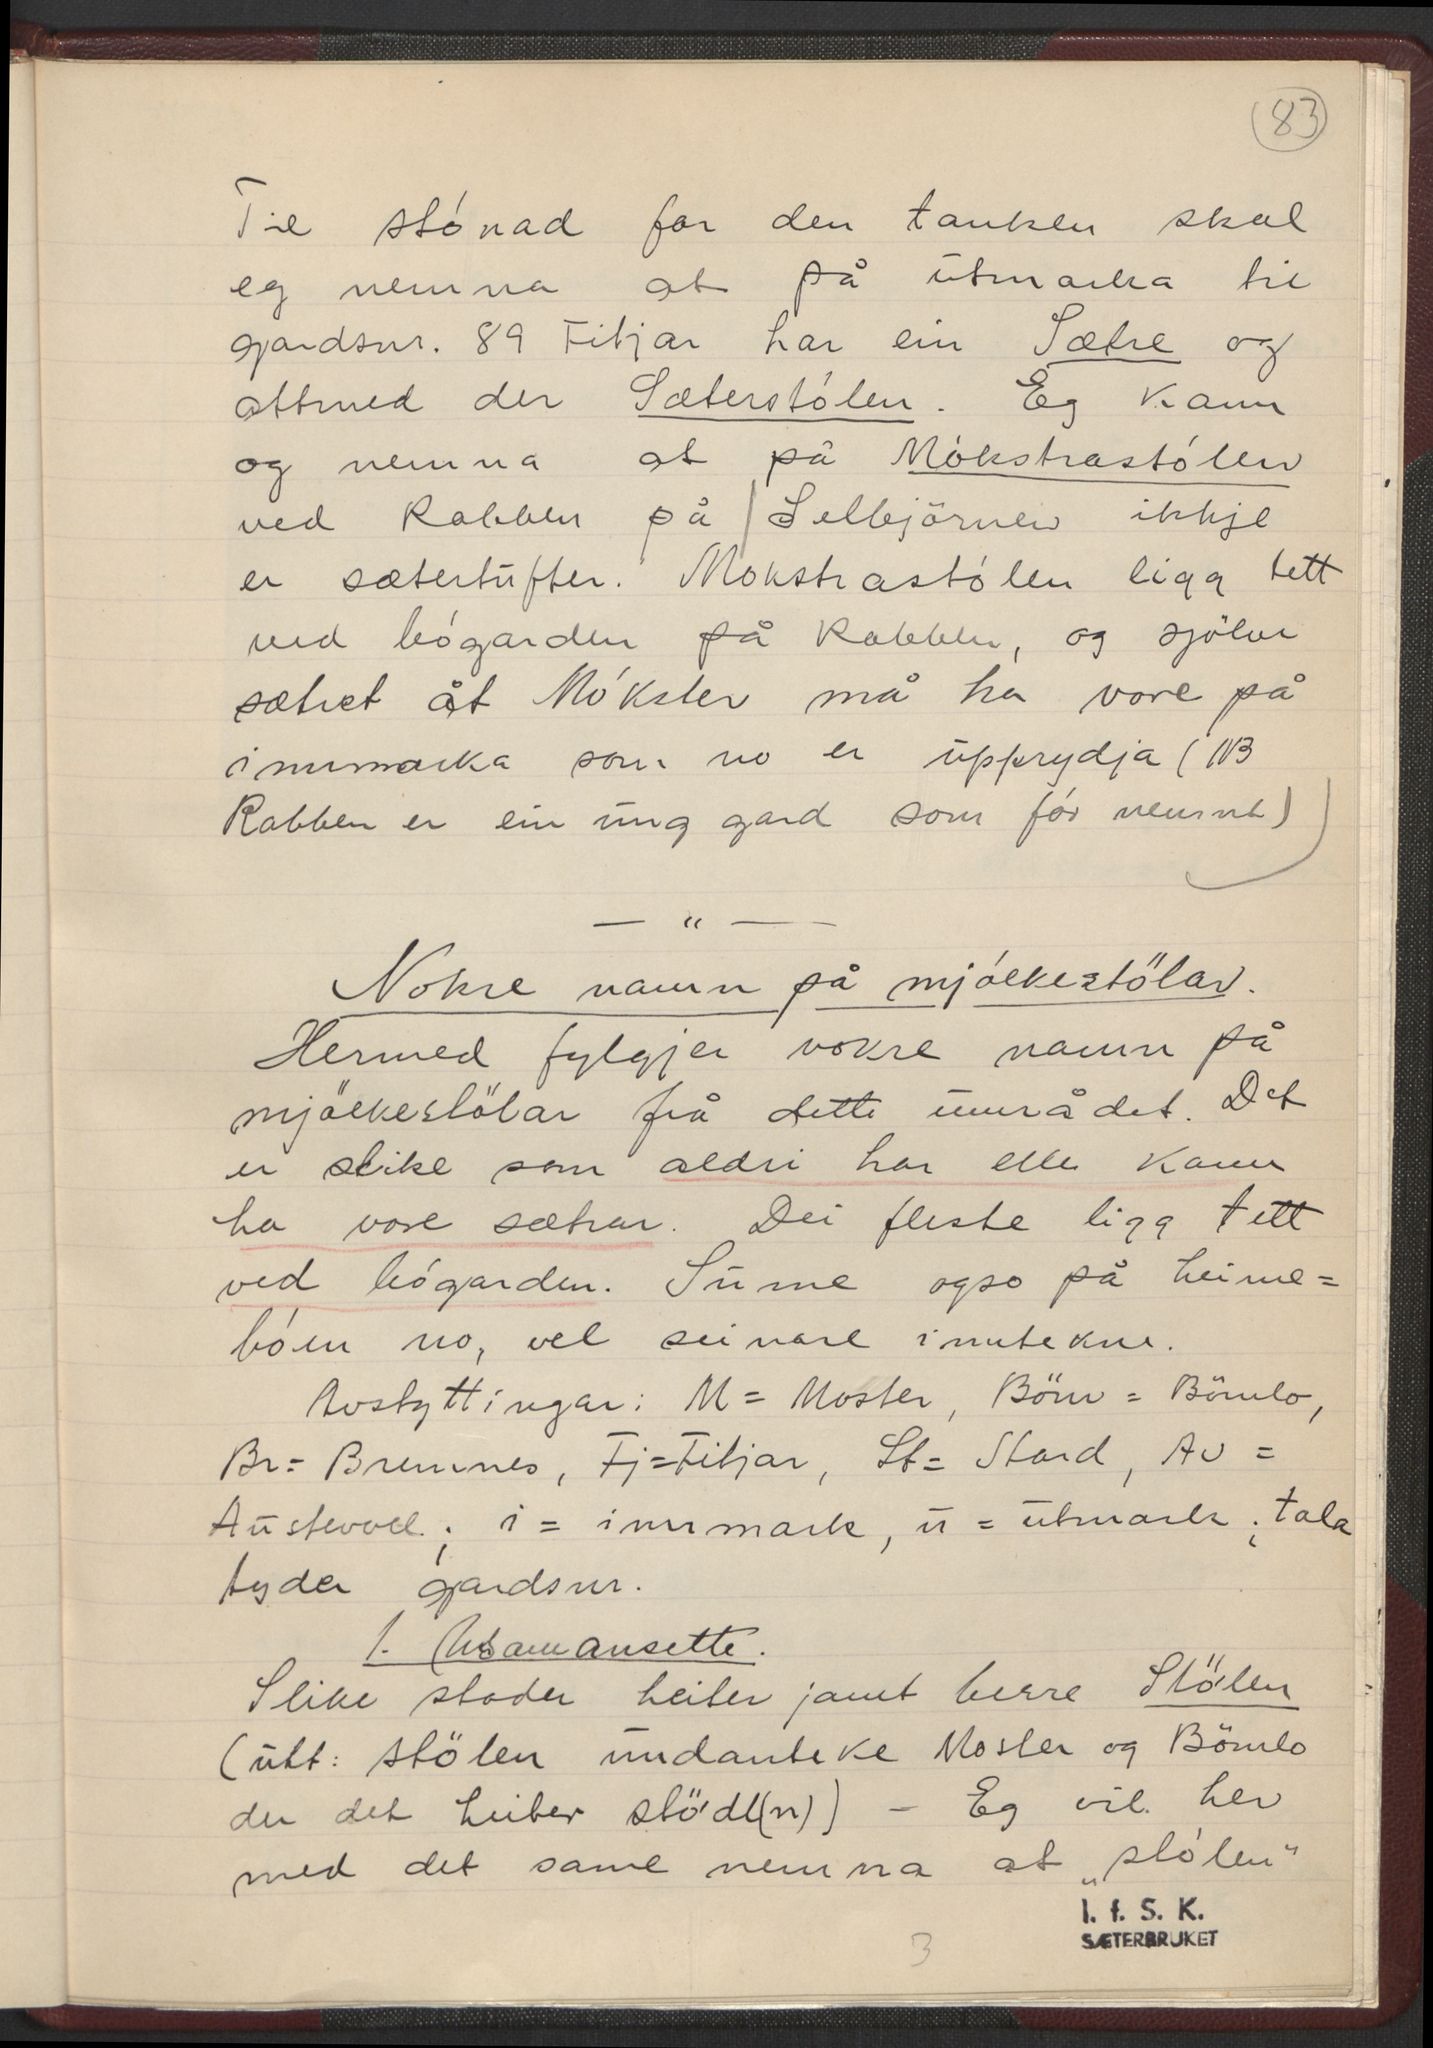 83
Til stónad for den tanken skal
eg nemna at på utmarka til
gardsnr. 89 Fitjar har ein Sætre og
attmed der Sæterstólen. Eg kann
og nemna at på Mókstrastólen
ved Rabben på Selbjörnen ikkje
er sætertufter. Mokstrastólen ligg tett
ved bógarden på Rabben, og sjölve
sætret åt Mókster må ha vore på
innmarka som no er upprydja (NB
Rabben er ein ung gard som för nemnt)
— " —
Nokre namn på mjólkestölar.
Hermed fylgjer nokre namn på
mjölkestölar frå dette umrådet. Det
er slike som aldri har elle kann
ha vore sætrar. Dei fleste ligg tett
ved bógarden. Sume ogso på heime=
bóen no, vel seinare inntekne.
Avstyttingar: M = Moster, Böm = Bömlo,
Br = Bremnes, Fj = Fitjar, St = Stord, Av =
Austevoll; i = innmark, u = utmark; tala
tyder gardsnr.
1. Usamansette.
Slike stader heiter jamt berre Stölen
(utt: stölen undanteke Moster og Bömlo
der det heiter stödl(n)) – Eg vil her
med det same nemna at „stólen“
I. f. S. K.
SÆTERBRUKET
3